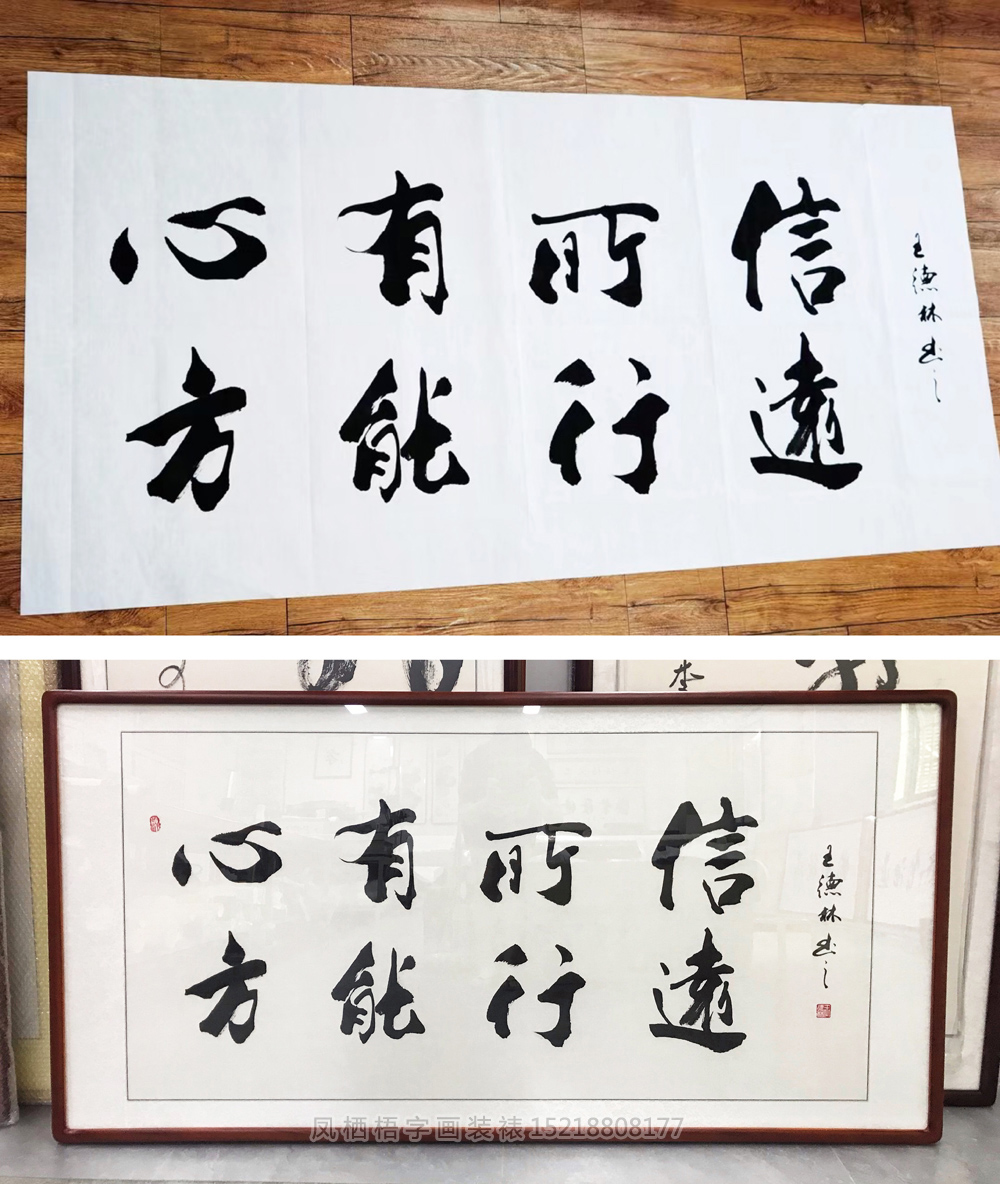 心有所信
方能行遠
王德林书之
心有所信
方能行遠
王德林书之
凤栖梧字画装裱15218808177